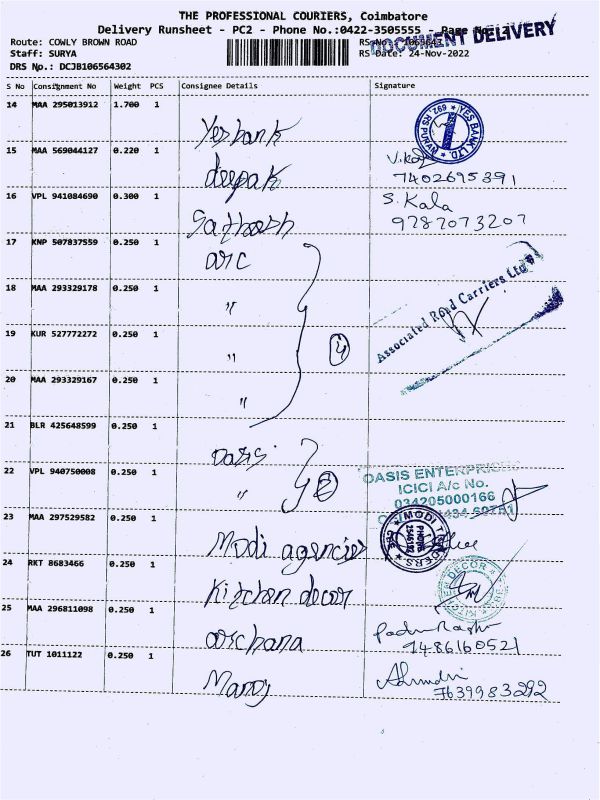 THE PROFESSIONAL COURIERS, Coimbatore
Delivery Runsheet - PC2 - Phone No.:0422-3505555 - Page No.: 2
DOCUMENT DELIVERY
Route: COWLY BROWN ROAD
Staff: SURYA
RS Date: 24-Nov-2022
DRS No.: DCJB106564302
S No Consignment No Weight PCS Consignee Details Signature
14 MAA 295013912 1.700 1
Yes bank
YES BANK LTD.
15 MAA 569044127 0.220 1
deepak
7402695391
16 VPL 941084690 0.300 1
Satheesh
S. Kala
9787073207
17 KNP 507837559 0.250 1
arc
18 MAA 293329178 0.250 1
"
Associated Road Carriers Ltd
19 KUR 527772272 0.250 1
" 4
20 MAA 293329167 0.250 1
"
21 BLR 425648599 0.250 1
oasis
22 VPL 940750008 0.250 1
" 2
OASIS ENTERPRISES
ICICI A/c No.
034205000166
23 MAA 297529582 0.250 1
Modi agencies
MODI TRADERS
24 RKT 8683466 0.250 1
Kitchen decor
KITCHEN DECOR
25 MAA 296811098 0.250 1
archana
7486160521
26 TUT 1011122 0.250 1
Manoj
7639983292